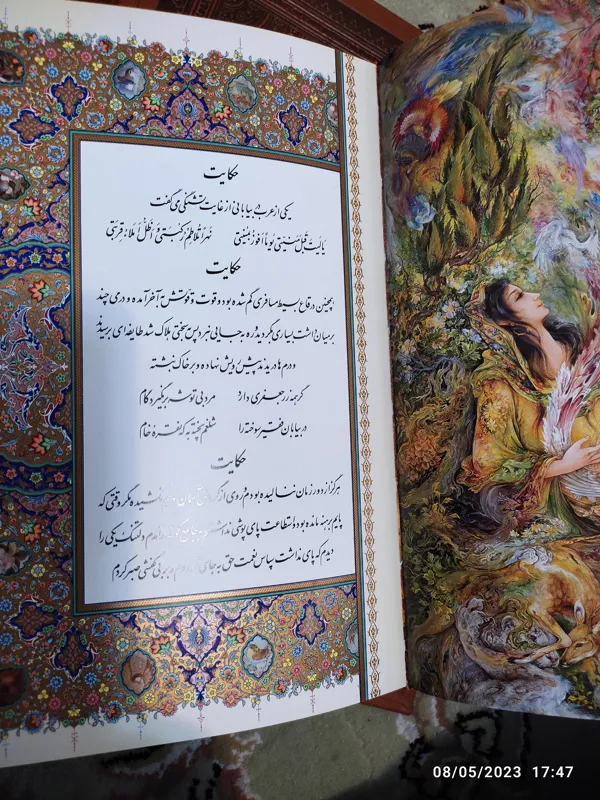 حکایت
یکی از عرب در بیابانی از غایت تشنگی می گفت
یا لَیْتَ قَبْلَ مَنِیَّتی یَوْماً اَفُوزُ بِمُنْیَتی
نَهْراً تَلاطَمَ رُکْبَتی وَ اَظَلُّ اَمْلَاُ قِرْبَتی
حکایت
همچنین در قاع بسیط مسافری گم شده بود و قوت و قوتش به آخر آمده و درمی چند
بر میان داشت بسیاری بگردید و ره به جایی نبرد پس به سختی هلاک شد طایفه ای برسیدند
و درمها دیدند پیش رویش نهاده و بر خاک نبشته
گر همه زر جعفری دارد
مرد بی توشه بر نگیرد کام
در بیابان فقیر سوخته را
شلغم پخته به که نقره خام
حکایت
هرگز از دور زمان ننالیده بودم و روی از گردش آسمان در هم نکشیده مگر وقتی که
پایم برهنه مانده بود و استطاعت پای پوشی نداشتم به جامع کوفه در آمدم دلتنگ یکی را
دیدم که پای نداشت سپاس نعمت حق به جای آوردم و بر بی کفشی صبر کردم
08/05/2023 17:47